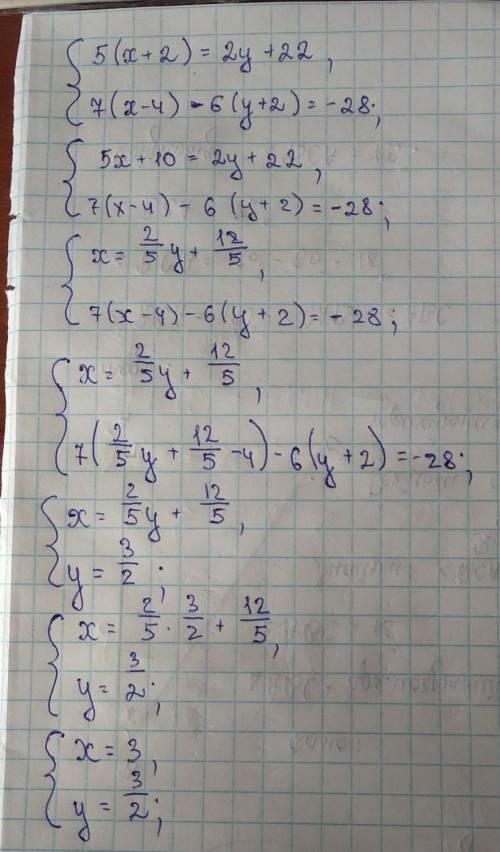 5(x+2) = 2y+22,
7(x-4) - 6(y+2) = -28;
5x+10 = 2y+22,
7(x-4) - 6(y+2) = -28;
x = 2/5 y + 12/5,
7(x-4) - 6(y+2) = -28;
x = 2/5 y + 12/5,
7(2/5 y + 12/5 - 4) - 6(y+2) = -28;
x = 2/5 y + 12/5,
y = 3/2;
x = 2/5 · 3/2 + 12/5,
y = 3/2;
x = 3,
y = 3/2;